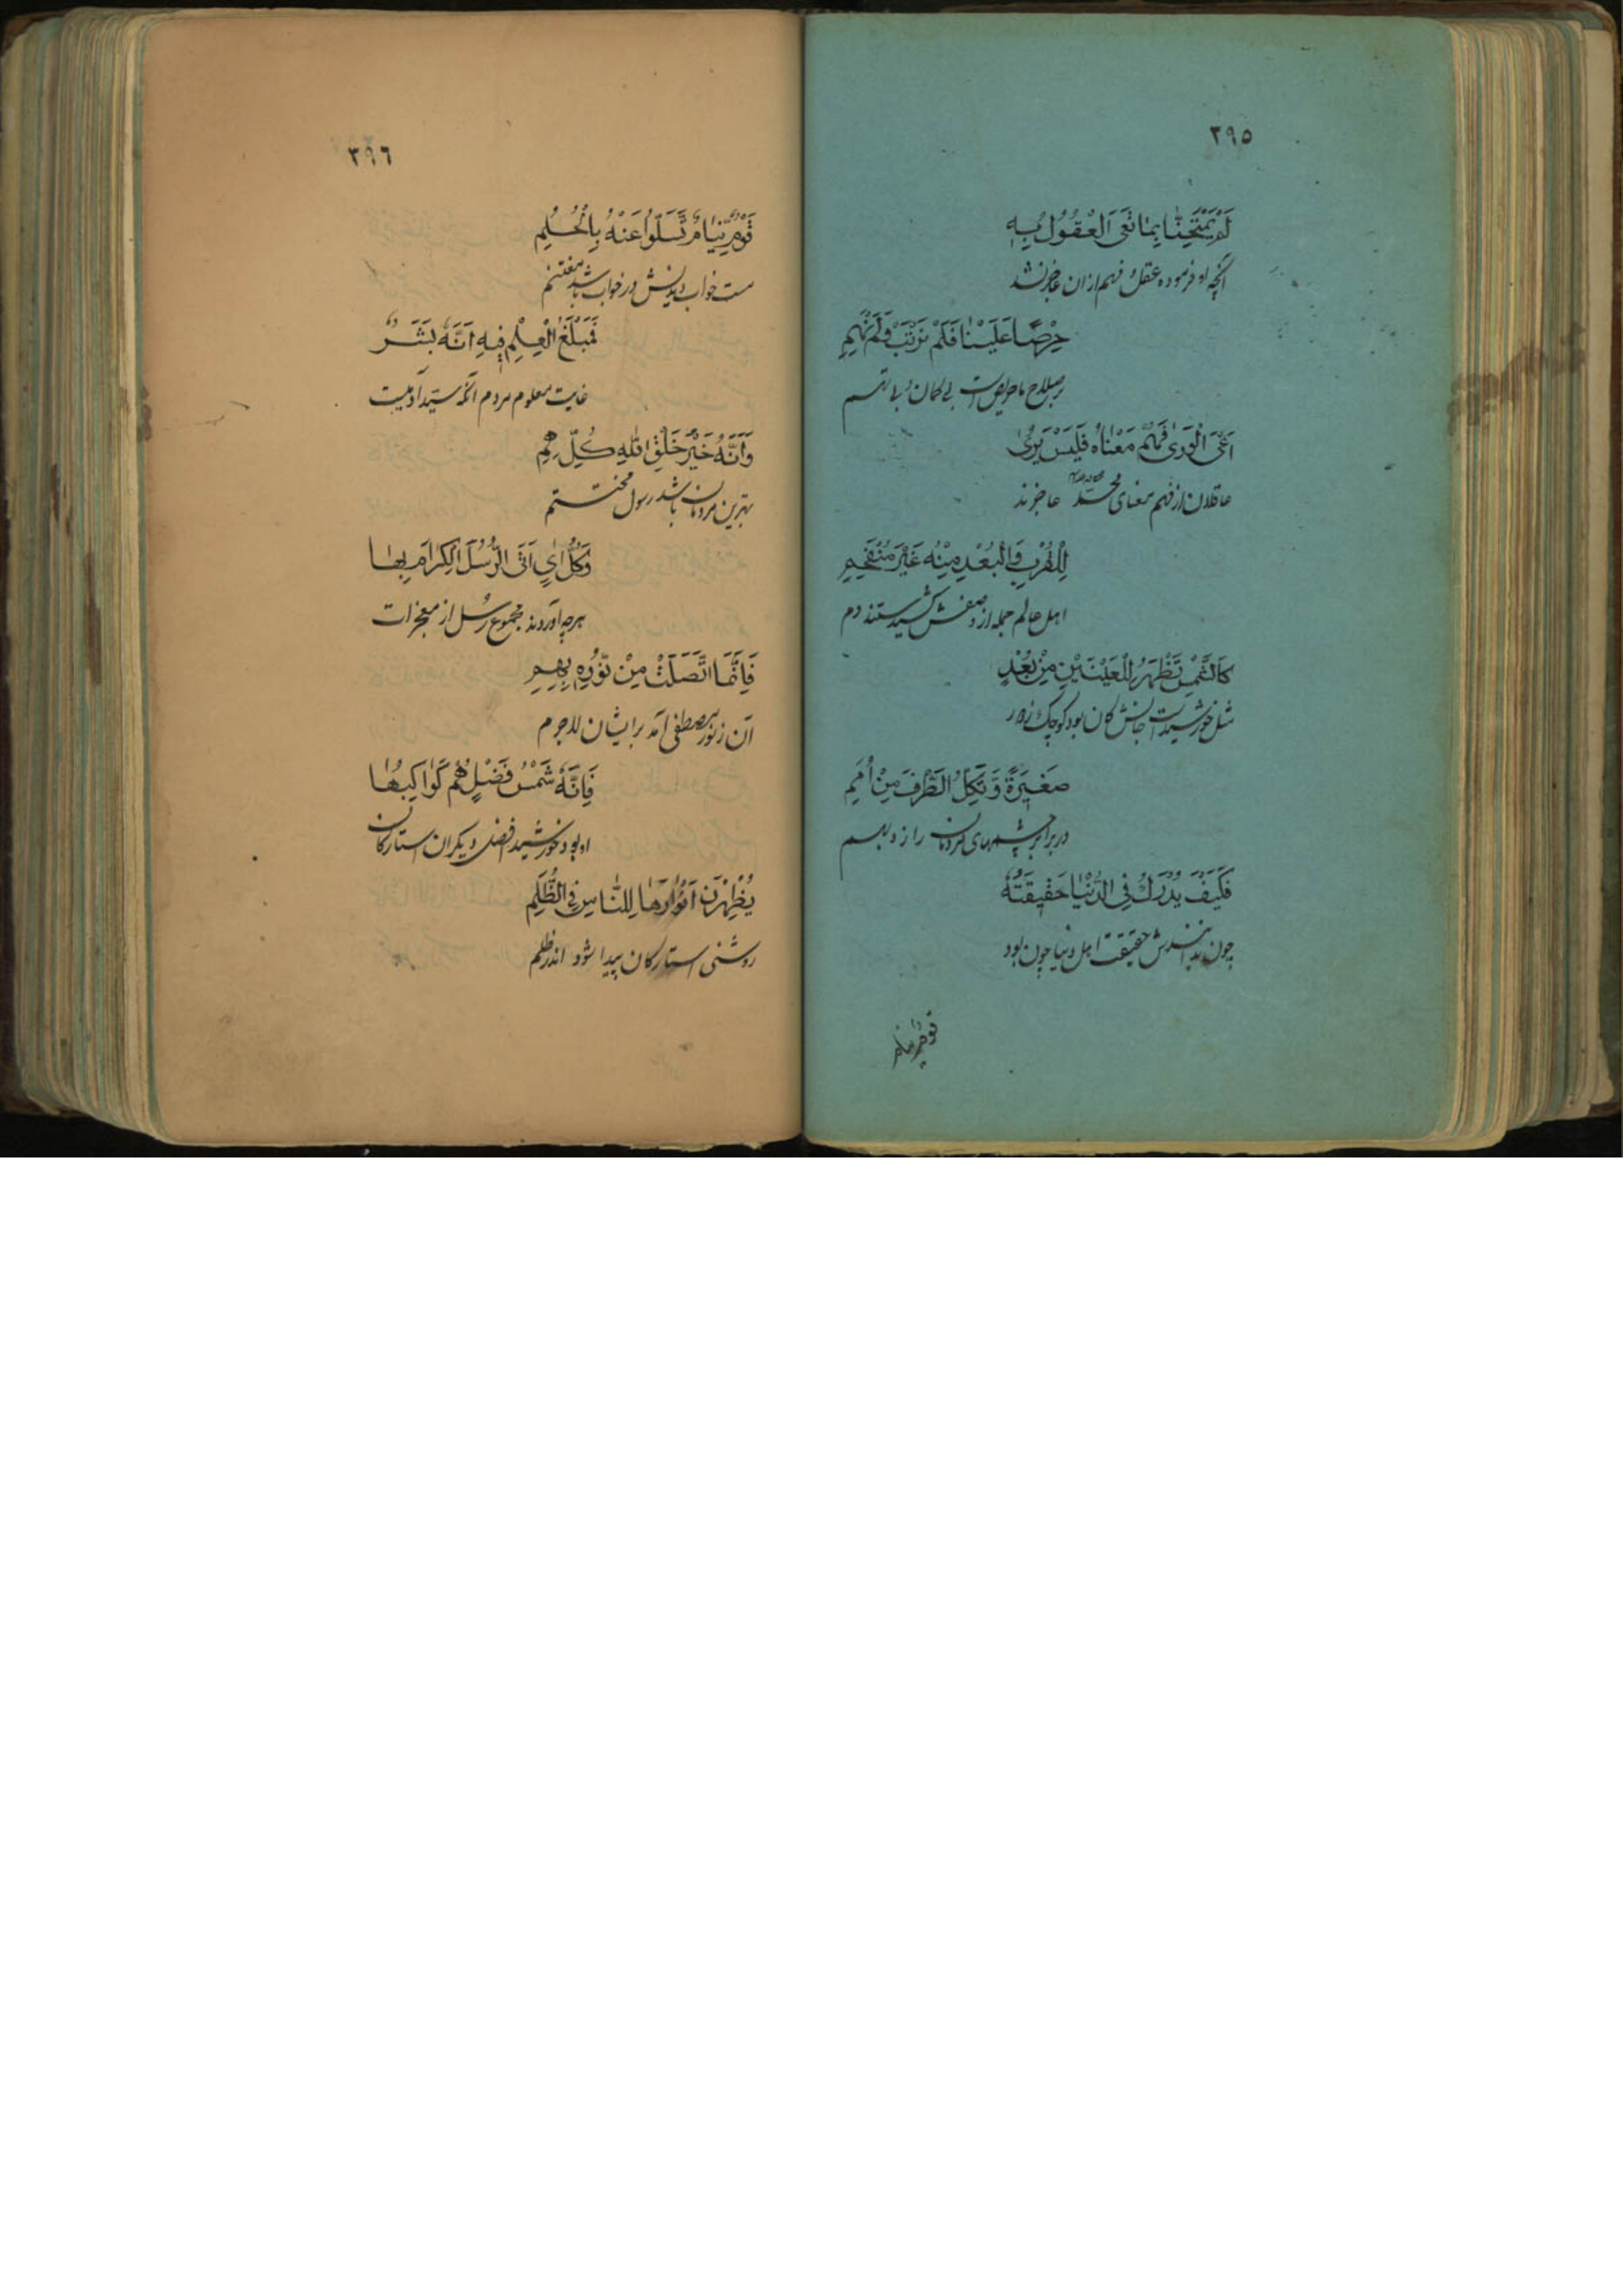 ٣٩٥
لَمْ يَمْتَحِنَّا بِمَا تَعْيَ الْعُقُوْلُ بِهٖ
آنچه او فرموده عقل و فهم ازان عاجز نشد
حِرْصًا عَلَيْنَا فَلَمْ نَرْتَبْ وَلَمْ نَهِمِ
بر صلاح ما حریص است بی گمان و بی تهم
اَعْيَ الْوَرٰى فَهْمُ مَعْنَاهُ فَلَيْسَ يُرٰى
عاقلان از فهم معنای محمد عاجزند
لِلْقُرْبِ وَالْبُعْدِ مِنْهُ غَيْرُ مُنْفَحِمِ
اهل عالم جمله از وصفش کشیدستند دم
كَالشَّمْسِ تَظْهَرُ لِلْعَيْنَيْنِ مِنْ بُعُدٍ
مثل خورشید است جانش کان بود کوچک ز دور
صَغِيْرَةً وَّتُكِلُّ الطَّرْفَ مِنْ اُمَمِ
در برابر چشمهای مردمان را زد بهم
فَكَيْفَ يُدْرِكُ فِي الدُّنْيَا حَقِيْقَتَهٗ
چون بدانندش حقیقت اهل دنیا چون بود
قوم نیام
٣٩٦
قَوْمٌ نِّيَامٌ تَسَلَّوْا عَنْهُ بِالْحُلُمِ
مست خواب دیدنش در خواب باشد مغتنم
فَمَبْلَغُ الْعِلْمِ فِيْهِ اَنَّهٗ بَشَرٌ
غایت معلوم مردم آنکه سید آدمیست
وَاَنَّهٗ خَيْرُ خَلْقِ اللّٰهِ كُلِّهِمِ
بهترین مردمان باشد رسول محتشم
وَكُلُّ اٰيٍ اَتَى الرُّسُلُ الْكِرَامُ بِهَا
هرچه آوردند مجموع رسل از معجزات
فَاِنَّمَا اتَّصَلَتْ مِنْ نُّوْرِهٖ بِهِمِ
آن ز نور مصطفی آمد برایشان لاجرم
فَاِنَّهٗ شَمْسُ فَضْلٍ هُمْ كَوَاكِبُهَا
او بود خورشید افضل دیگران استارگان
يُظْهِرْنَ اَنْوَارَهَا لِلنَّاسِ فِي الظُّلَمِ
روشنی استارگان پیدا شود اندر ظلم